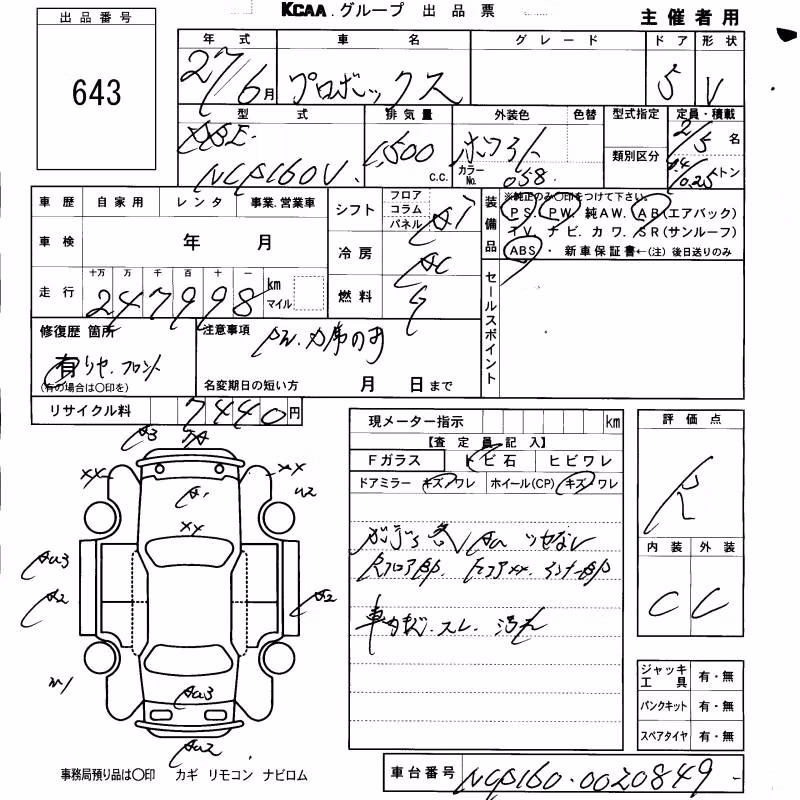 KCAA.グループ 出品票
主催者用
出品番号
643
年式 車名 グレード ドア 形状
27/6月 プロボックス 5 V
型式 排気量 外装色 色替 型式指定 定員・積載
類別区分
NCP160V 1,500 c.c. カラーNo. 058 2/5 名
トン
車歴 自家用 レンタ 事業.営業車
車検 年 月
走行 十万 万 千 百 十 一 km マイル
247998
シフト フロア コラム パネル AT
冷房 AC
燃料 G
装備品 ※純正のみ〇印をつけて下さい。
PS. PW. 純AW. AB(エアバック)
TV. ナビ. カワ. SR(サンルーフ)
ABS・ 新車保証書←(注) 後日送りのみ
セールスポイント
修復歴 箇所
有 リヤ.フロント
(有の場合は〇印を)
注意事項
PW.
名変期日の短い方 月 日まで
リサイクル料 7440円
現メーター指示 km
【査定員記入】
Fガラス トビ石 ヒビワレ
ドアミラー キズ・ワレ ホイール(CP) キズ・ワレ
評価点
R
内装 外装
C C
A3
XX XX
A1 U2
XX
AU3
A2 A2
AU3
AU2
ジャッキ工具 有・無
パンクキット 有・無
スペアタイヤ 有・無
事務局預り品は〇印 カギ リモコン ナビロム
車台番号 NCP160-0020849